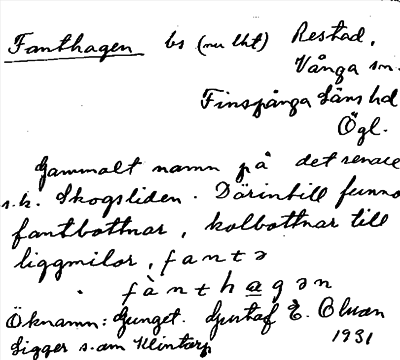 Fanthagen bs (nu lht) Restad,
Vånga sn.
Finspånga läns hd
Ögl.
Gammalt namn på det senare
s.k. Skogsliden. Därintill funno
fantbottnar, kolbottnar till
liggmilor, fantə
fànthagən
Öknamn: Ljunget. Gustaf E. Olson
Ligger s.om Klintorp 1931